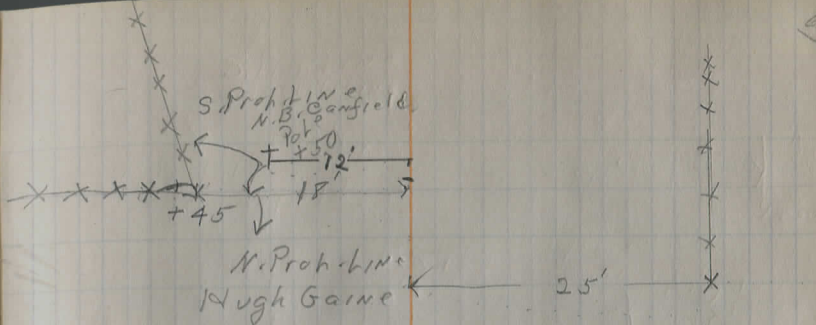 S. Prop. Line
N. B. Canfield
Pot
+50
12'
18'
+45
N. Prop. Line
Hugh Gaine
25'